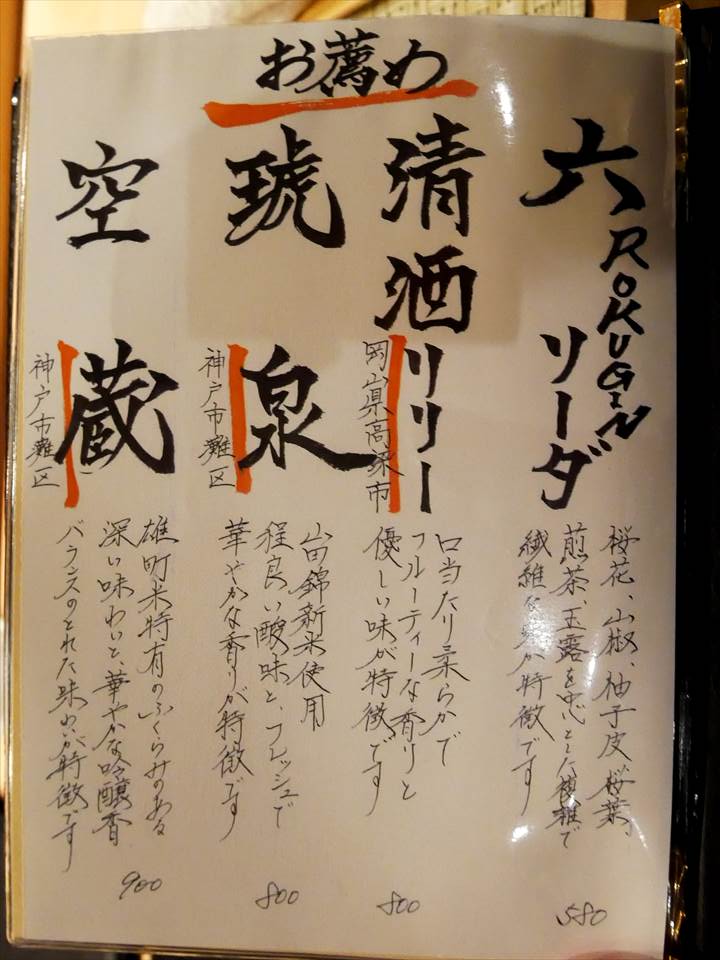 お薦め
六 ROKUGIN
ソーダ
桜花、山椒、柚子皮、桜葉、
煎茶、玉露を中心とした複雑で
繊細な味が特徴です
580
清酒
リリー
岡山県高梁市
口当たり柔らかで
フルーティーな香りと
優しい味が特徴です
800
琥
泉
神戸市灘区
山田錦新米使用
程良い酸味と、フレッシュで
華やかな香りが特徴です
800
空
蔵
神戸市灘区
雄町米特有のふくらみのある
深い味わいと、華やかな吟醸香
バランスのとれた味わいが特徴です
900